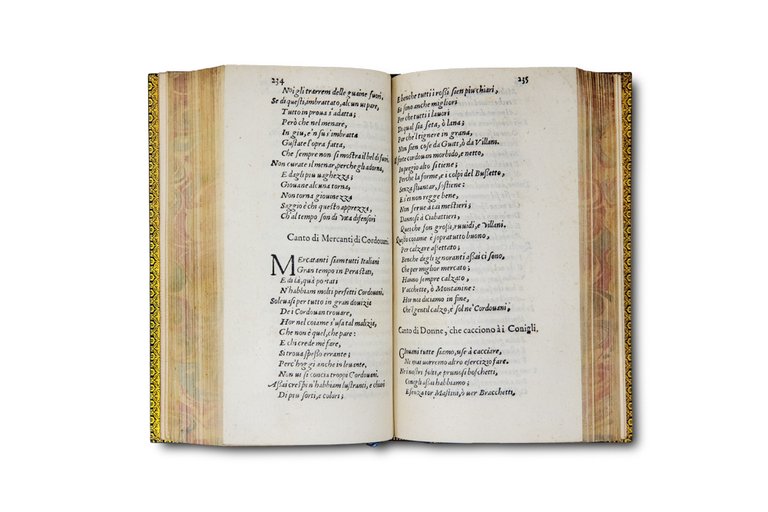 234
Noi gli trarrem delle guaine fuori,
Se di questi, imbrattato, alcun ui pare,
Tutto in proua s'adatta;
Però che nel menare,
In giu, e'n su s'imbratta
Gustate l'opra fatta,
Che sempre non si mostra il bel di fuori.
Non curate il menar, perche gli adorna,
E dagli piu uaghezza;
Giouane alcuna torna,
Non torna giouinezza
Saggio è chi questo apprezza,
Ch'al tempo son di uita difensori
Canto di Mercanti di Cordouani.
MErcatanti siam tutti Italiani
Gran tempo in Pera stati,
E di là, quà portati
N'habbiam molti perfetti Cordouani.
Soleuasi per tutto in gran douizia
De i Cordouan trouare,
Hor nel coiame s'usa tal malizia,
Che non è quel, che pare:
E chi crede me fare,
Si troua spesso errante;
Perc'hoggi anche in leuante,
Non ue si concia troppo Cordouani.
Assai crespi n'habbiam lustranti, e chiari
Di piu sorti, e colori;
235
E benche tutti i rossi sien piu chiari,
Vi sono anche migliori
Per che tutti i lauori
Di qual sia seta, ò lana;
Perche l'tignere in grana,
Non sien cose da Guatt, ò da Villani.
Il forte cordouan morbido, e netto,
In pegio alto si tiene;
Perche la forme, e i colpi del Bussetto,
Senza stiantar, sostiene:
E s'ei non regge bene,
Non serue a tai mestieri;
Donnosi à Ciabattieri,
Quei che son grossi, ruuidi, e Villani.
Questo coiame è sopratutto buono,
Per calzare assettato;
Benche degli ignoranti assai ci sono,
Che per miglior mercato;
Hanno sempre calzato,
Vacchette, ò Montanine:
Hor noi diciamo in fine,
Che l gentil calzo, e sol ne' Cordouani,
Canto di Donne, che cacciono à i Conigli.
Giouani tutte siamo, use à cacciare,
Ne mai uorremo altro esercizio fare.
Ne i nostri folti, e prunosi boschetti,
Conigli assai habbiamo;
E senza tor Mastini, ò uer Bracchetti,